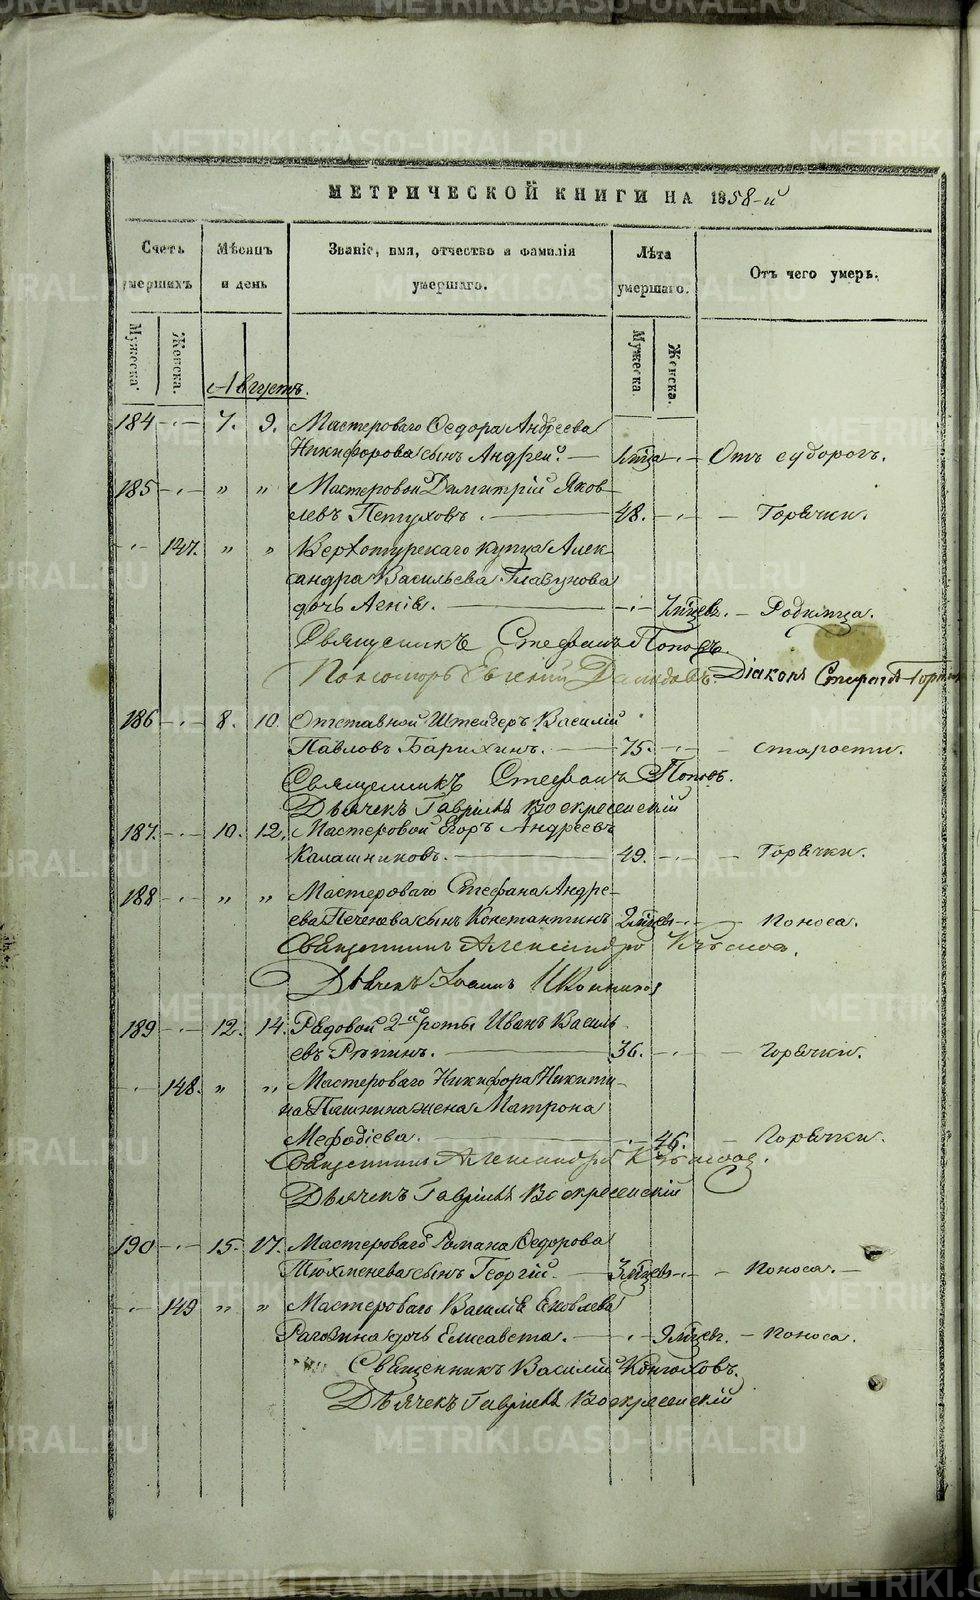 МЕТРИЧЕСКОЙ КНИГИ НА 1858-й
Счетъ умершихъ
Мѣсяцъ и день
Званіе, имя, отчество и фамилія умершаго.
Лѣта умершаго.
Отъ чего умеръ.
Мужеска.
Женска.
Мужеска.
Женска.
Августъ.
184 7. 9. Мастероваго Ѳедора Андреева
Никифорова сынъ Андрей. Отъ судорогъ.
185 " " Мастеровой Димитрій Яков
левъ Петуховъ. 48. Горячки.
147. " " Верхотурскаго купца Алек
сандра Васильева Главунова
дочь Агнія. Родимца.
Священникъ Стефанъ Поповъ.
Пономорь Евгеній Давидовъ. Діаконъ Стефанъ
186 8. 10. Отставной Штейгеръ Василій
Павловъ Барихинъ. 75. старости.
Священникъ Стефанъ Поповъ.
Дьячекъ Гавріилъ Воскресенскій
187. 10. 12. Мастеровой Егоръ Андреевъ
Калашниковъ. 49. Горячки.
188 " " Мастероваго Стефана Андре-
ева Печенева сынъ Константинъ 2 мѣсяц. Поноса.
Священникъ Александръ
Дьячекъ Іоаннъ Иконниковъ
189 12. 14. Рядовой 2-й роты Иванъ Василь
евъ Репинъ. 36. Горячки.
148. " " Мастероваго Никифора Никити-
на Пашнина жена Матрона
Мефодіева. 46. Горячки.
Священникъ Александръ
Дьячекъ Гавріилъ Воскресенскій
190 15. 17. Мастероваго Романа Ѳедорова
Тюхменева сынъ Георгій. 3 мѣсяц. Поноса.
149 " " Мастероваго Василія Яковлева
Рагозина дочь Елисавета. Поноса.
Священникъ Василій Конюховъ.
Дьячекъ Гавріилъ Воскресенскій
METRIKI.GASO-URAL.RU